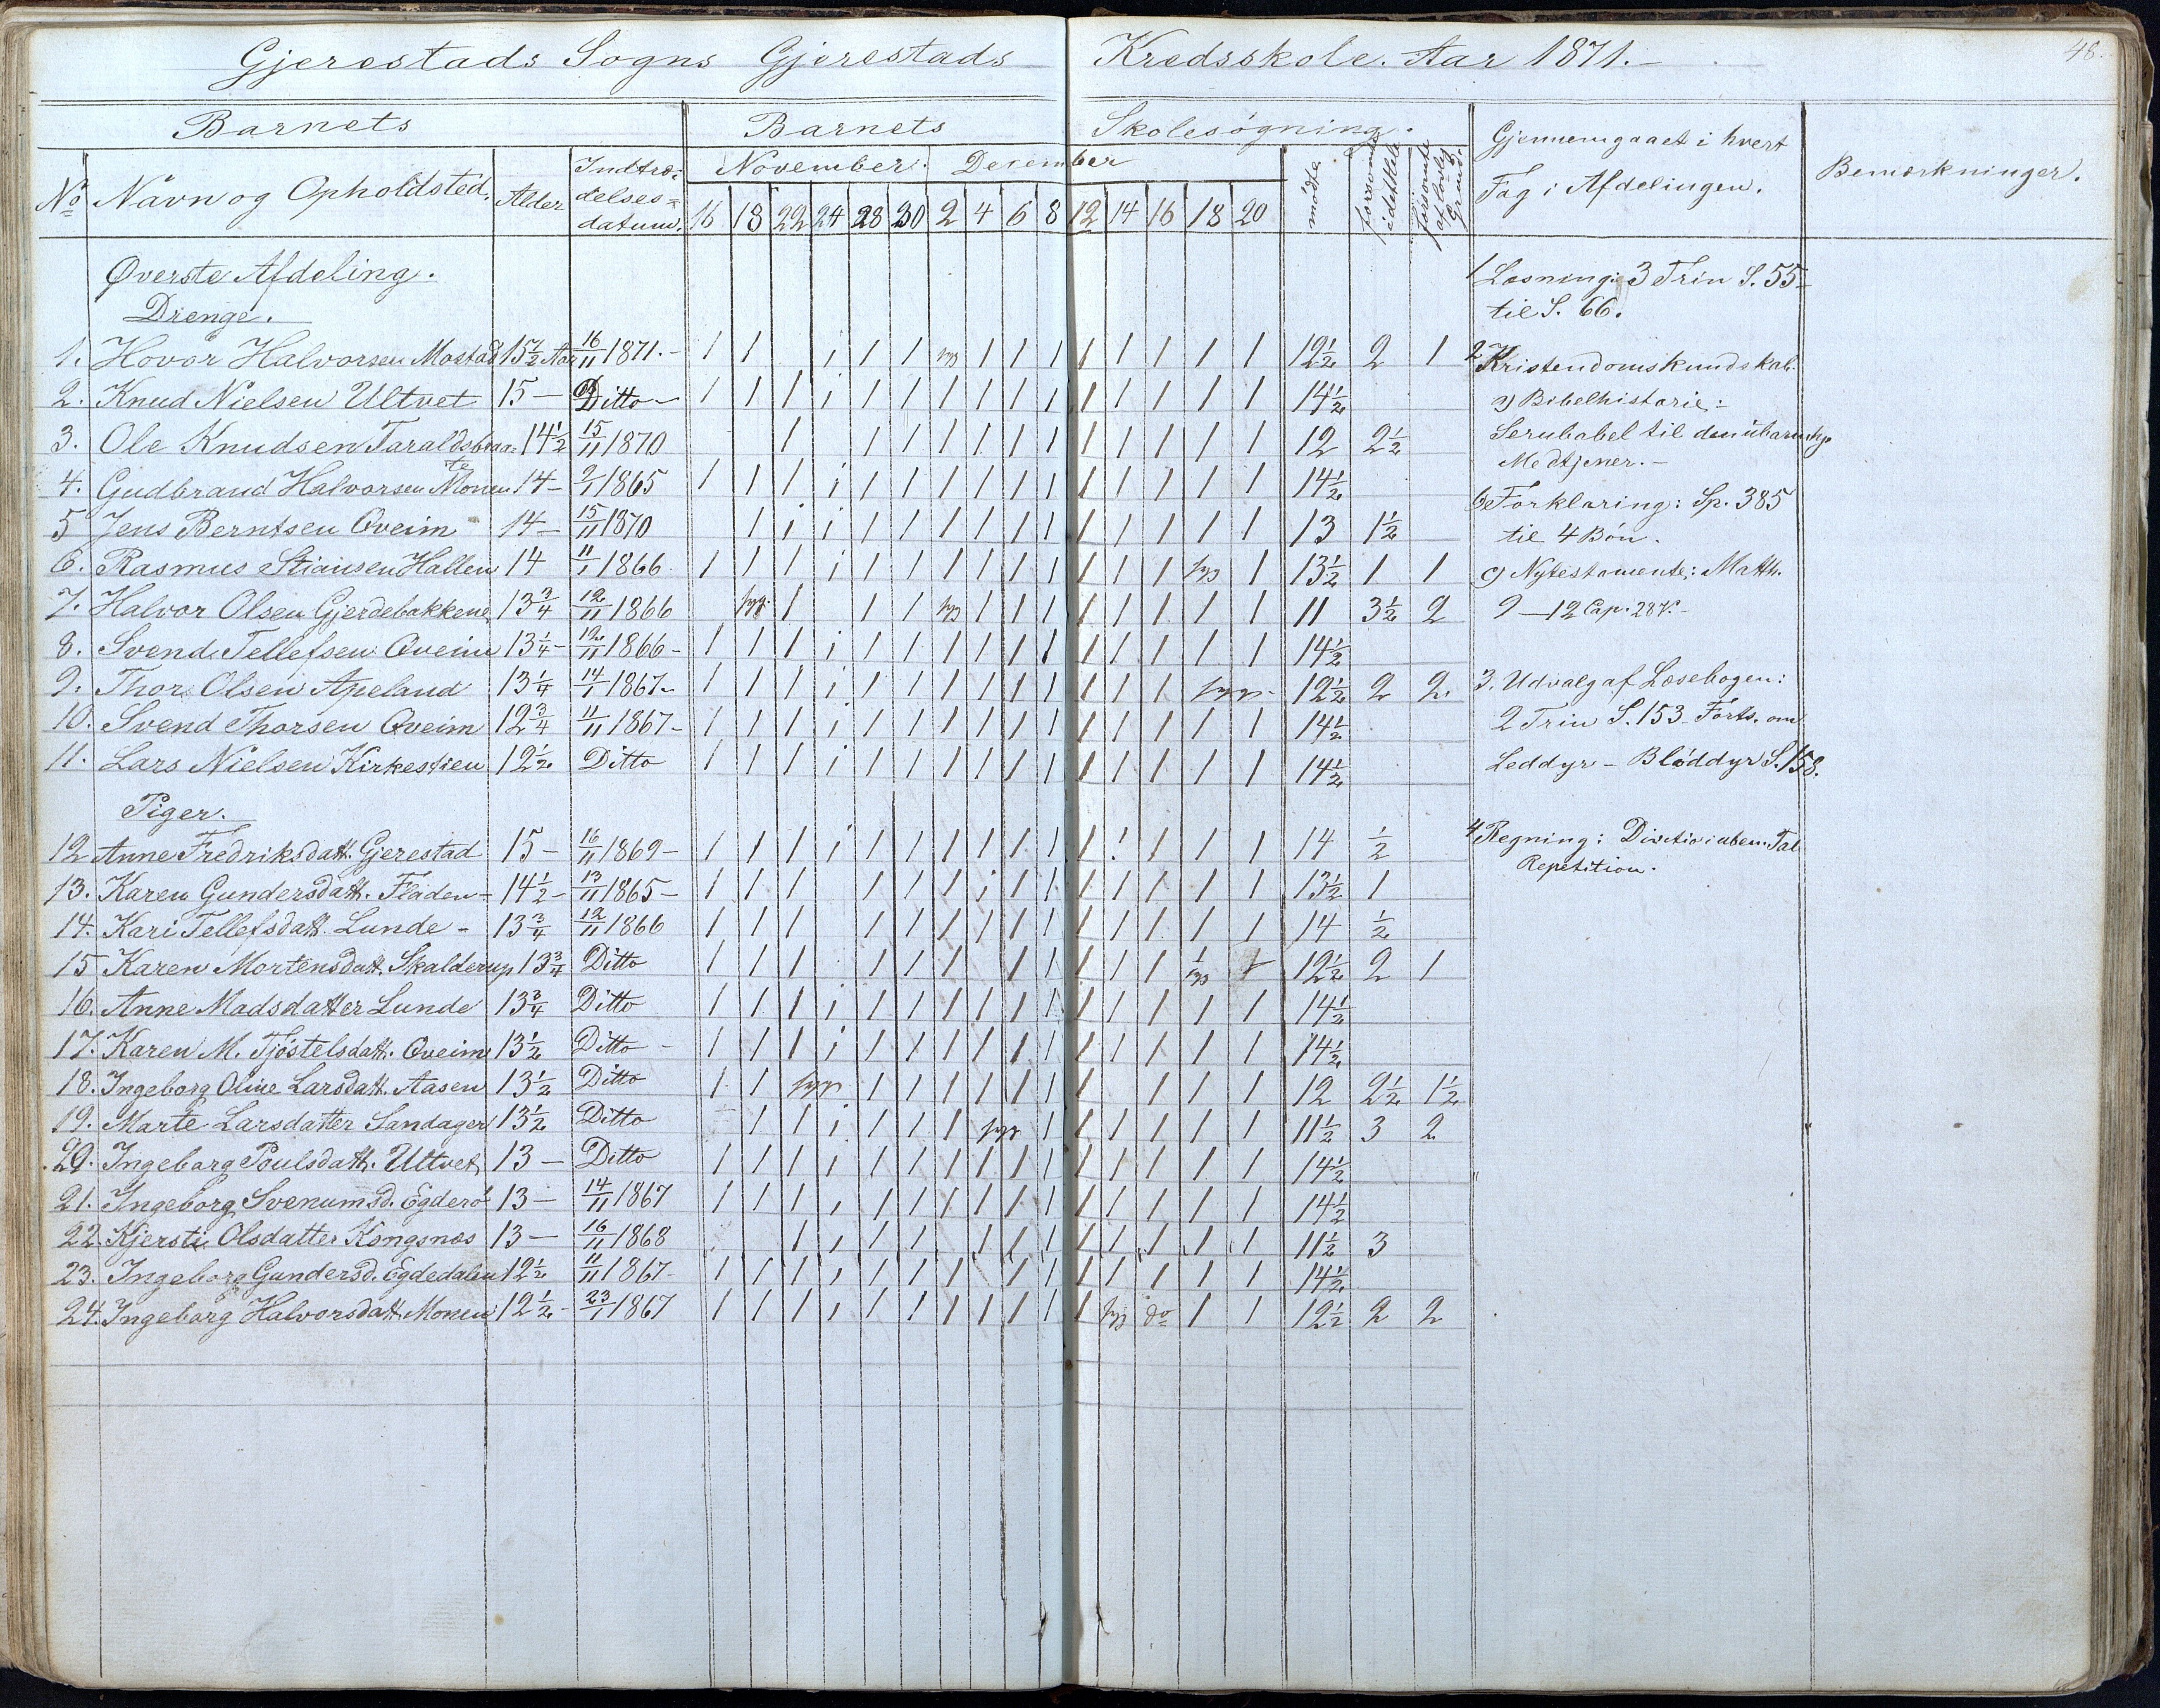 48.
Gjerestads Sogns Gjerestads Kredsskole. Aar 1871.
Barnets Barnets Skolesøgning.
No Navn og Opholdsted. Alder Indtræ-
delses=
datum.
November. December
16 18 22 24 28 30 2 4 6 8 12 14 16 18 20
mødte forsømte idethele forsømte af lovlig Grund.
Gjennemgaaet i hvert
Fag i Afdelingen.
Bemærkninger.
Øverste Afdeling.
Drenge.
1. Hovor Halvorsen Mostad 15 1/2 Aar 16/11 1871. - 1 1 1 1 1 syg 1 1 1 1 1 1 1 1 12 1/2 2 1
2. Knud Nielsen Ultvet 15 - Ditto - 1 1 1 1 1 1 1 1 1 1 1 1 1 1 1 14 1/2
3. Ole Knudsen Taraldsbraa= 14 1/2 15/11 1870 1 1 1 1 1 1 1 1 1 1 1 1 12 2 1/2
4. Gudbrand Halvorsen Monen 14 - 2/1 1865 1 1 1 1 1 1 1 1 1 1 1 1 1 1 1 14 1/2
5 Jens Berntsen Qveim 14 - 15/11 1870 1 1 1 1 1 1 1 1 1 1 1 1 1 1 13 1 1/2
6. Rasmus Stiansen Hallen 14 11/1 1866 1 1 1 1 1 1 1 1 1 1 1 1 1 syg 1 13 1/2 1 1
7. Halvor Olsen Gjerdebakkene 13 3/4 12/11 1866 syg. 1 1 1 syg 1 1 1 1 1 1 1 1 11 3 1/2 2
8. Svend Tellefsen Qveim 13 1/4 - 12/11 1866 - 1 1 1 1 1 1 1 1 1 1 1 1 1 1 1 14 1/2
9. Thor Olsen Apeland 13 1/4 14/1 1867 - 1 1 1 1 1 1 1 1 1 1 1 1 1 syg - 12 1/2 2 2.
10. Svend Thorsen Qveim 12 3/4 11/11 1867 - 1 1 1 1 1 1 1 1 1 1 1 1 1 1 1 14 1/2
11. Lars Nielsen Kirkestien 12 1/2 Ditto 1 1 1 1 1 1 1 1 1 1 1 1 1 1 1 14 1/2
Piger.
12 Anne Fredriksdatt. Gjerestad 15 - 16/11 1869 - 1 1 1 1 1 1 1 1 1 1 1 1 1 1 1 14 1/2
13. Karen Gundersdatt. Fladen - 14 1/2 - 13/11 1865 - 1 1 1 1 1 1 1 1 1 1 1 1 1 1 13 1/2 1
14. Kari Tellefsdatt. Lunde - 13 3/4 12/11 1866 1 1 1 1 1 1 1 1 1 1 1 1 1 1 14 1/2
15 Karen Mortensdatt. Skalderup 13 3/4 Ditto 1 1 1 1 1 1 1 1 1 1 1 1/syg 1 12 1/2 2 1
16. Anne Madsdatter Lunde 13 3/4 Ditto 1 1 1 1 1 1 1 1 1 1 1 1 1 1 1 14 1/2
17. Karen M. Tjøstelsdatt. Qveim 13 1/2 Ditto - 1 1 1 1 1 1 1 1 1 1 1 1 1 1 1 14 1/2
18. Ingeborg Oline Larsdatt. Aasen 13 1/2 Ditto 1 1 syg 1 1 1 1 1 1 1 1 1 1 12 2 1/2 1 1/2
19. Marte Larsdatter Sandager 13 1/2 Ditto 1 1 1 1 1 1 syg 1 1 1 1 1 1 11 1/2 3 2
20. Ingeborg Poulsdatt. Ultvet 13 - Ditto 1 1 1 1 1 1 1 1 1 1 1 1 1 1 1 14 1/2
21. Ingeborg Svenumsd. Egderø 13 - 14/11 1867 1 1 1 1 1 1 1 1 1 1 1 1 1 1 1 14 1/2
22. Kjersti Olsdatter Kongsnæs 13 - 16/11 1868 1 1 1 1 1 1 1 1 1 1 1 1 11 1/2 3
23. Ingeborg Gundersd. Egdedalen 12 1/2 11/11 1867 - 1 1 1 1 1 1 1 1 1 1 1 1 1 1 14 1/2
24. Ingeborg Halvorsdatt. Monen 12 1/2 - 23/1 1867 1 1 1 1 1 1 1 1 1 1 1 syg do 1 1 12 1/2 2 2
1 Læsning: 3 Trin S. 55 -
til S. 66.
2 Kristendomskundskab.
a) Bibelhistorie:
Serubabel til den ubarmhje
Medtjener. -
b) Forklaring: Sp. 385
til 4 Bøn.
c) Nytestamente: Matth.
9 - 12 Cap. 28 V. -
3. Udvalg af Læsebogen:
2 Trin S. 153 Forts. om
Leddyr - Bløddyr S. 158.
4 Regning: Divitio i uben. Tal
Repetition.